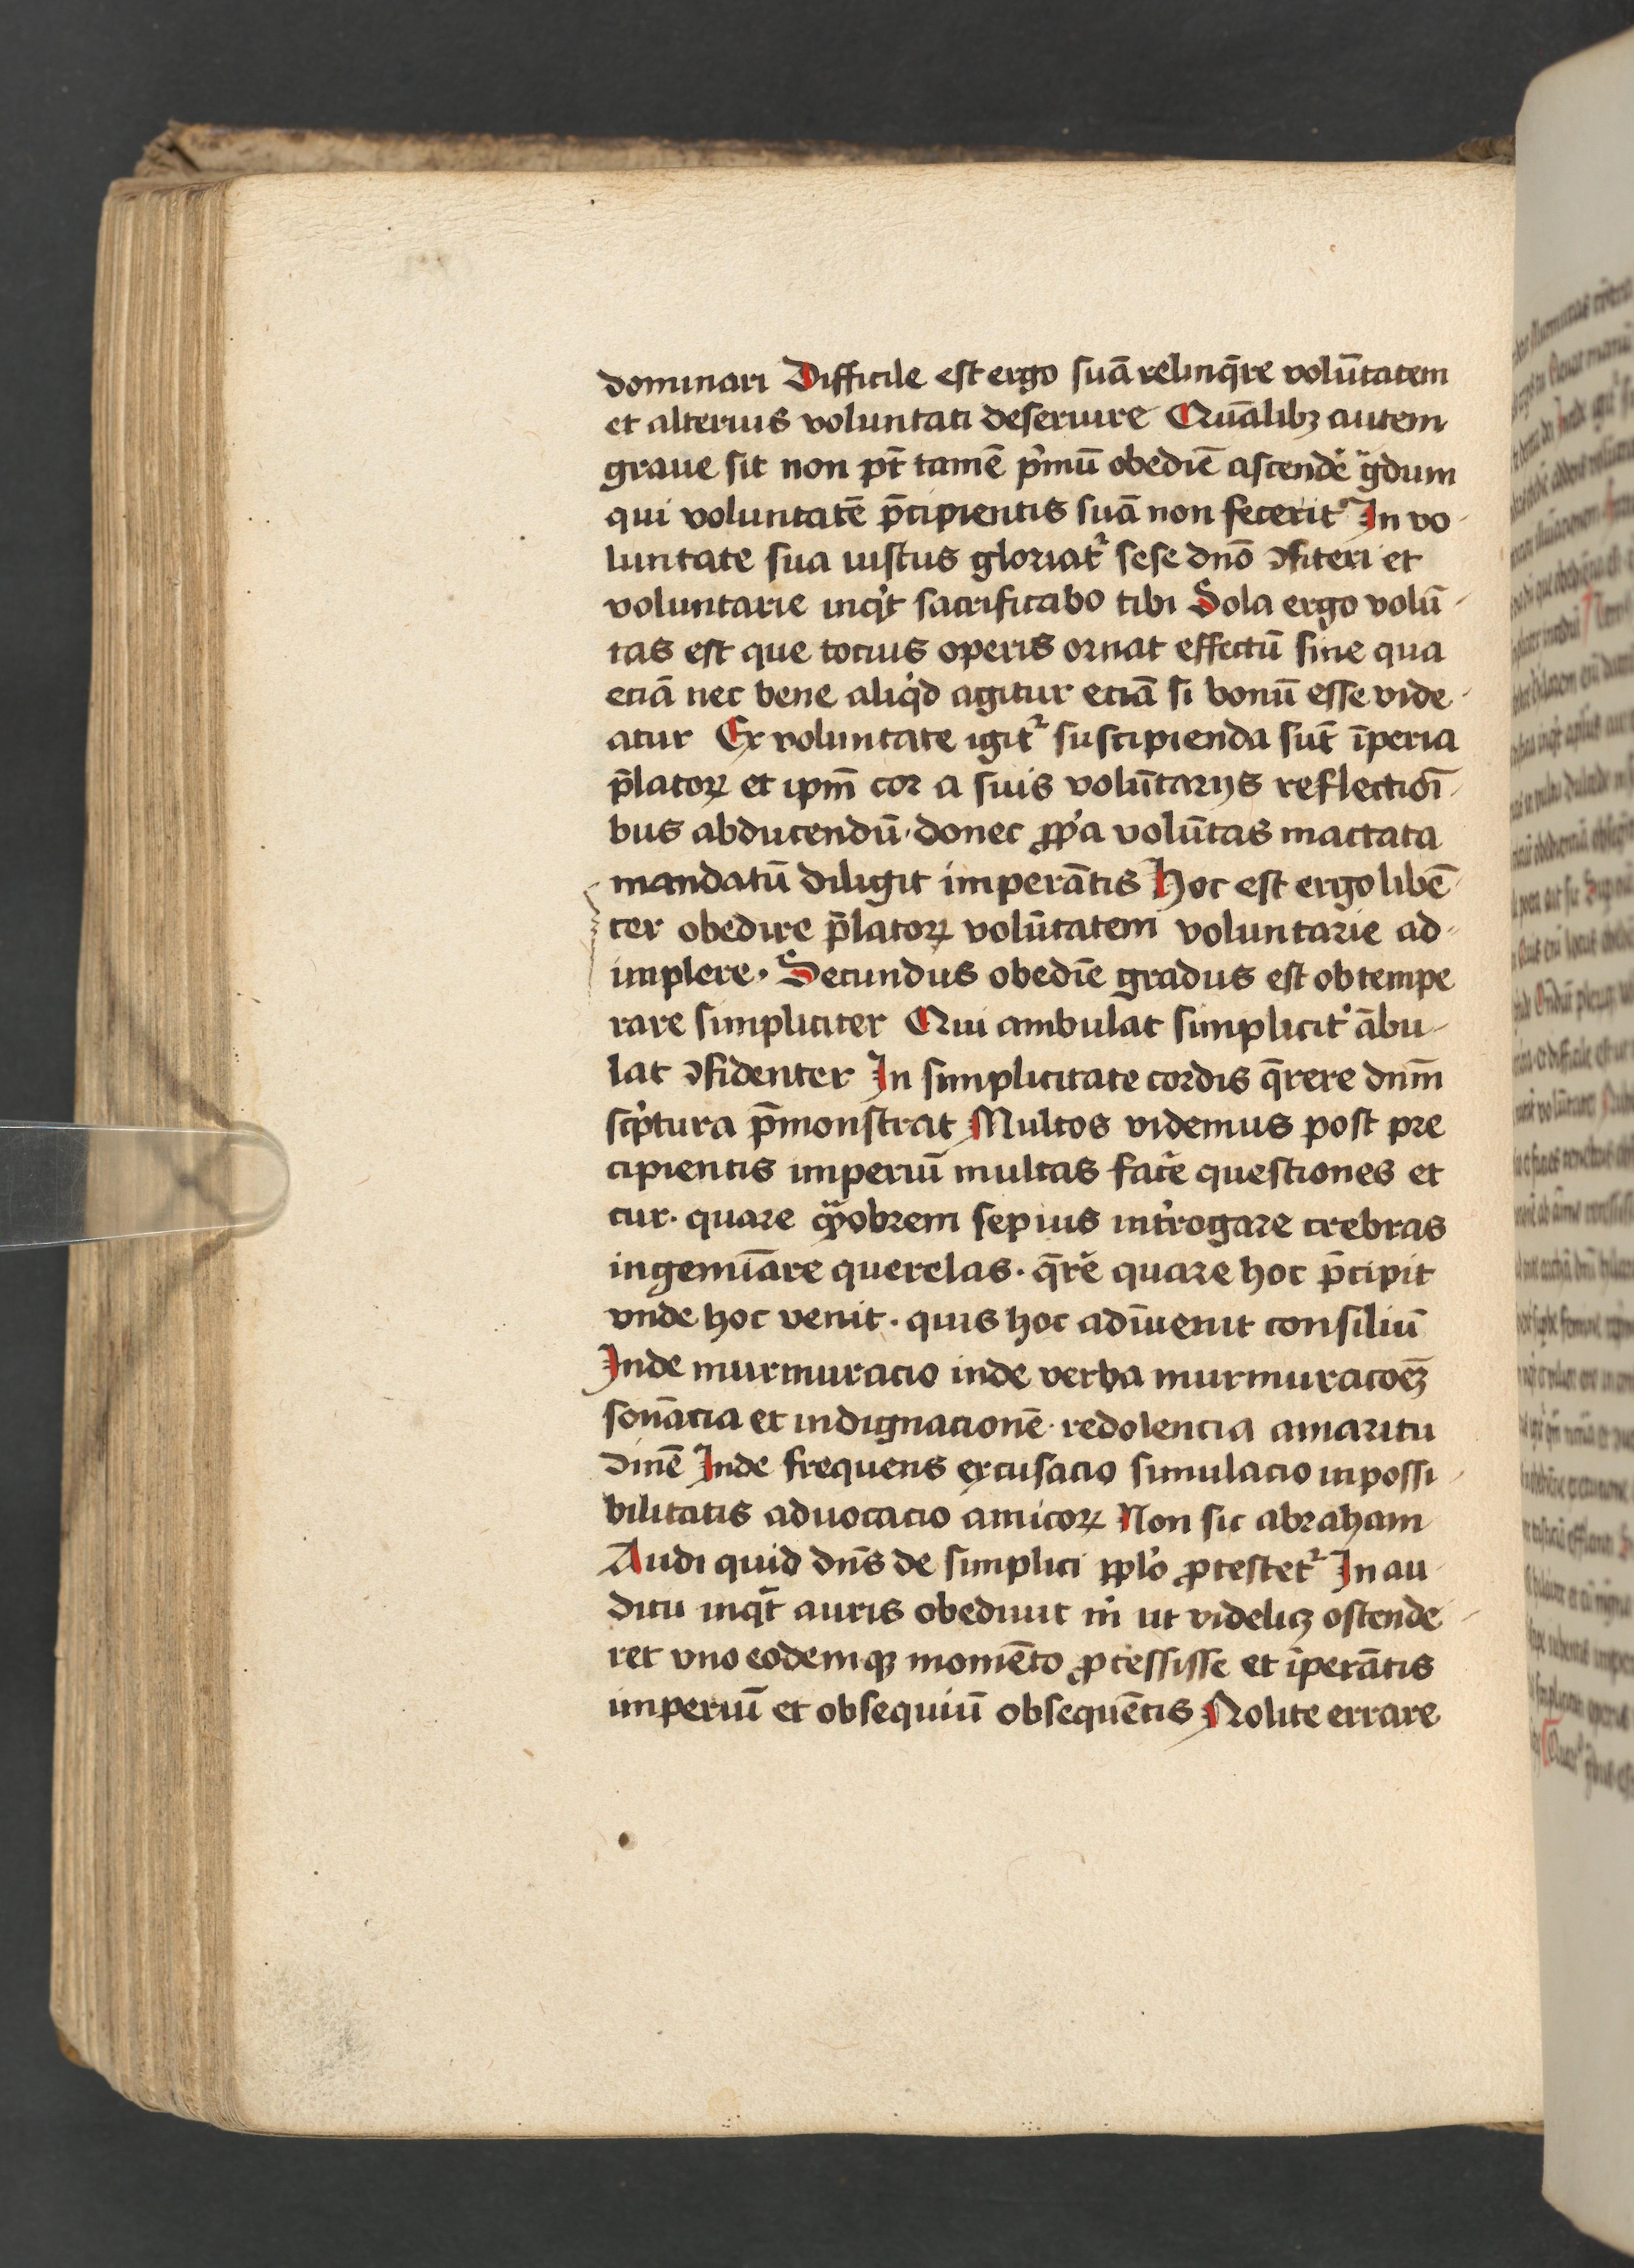 dominari Difficile est ergo suā relinq̄re volūtatem
et alterius voluntati deseruire Quālibꝫ autem
graue sit non pt̄ tamē pͥmū obediē ascendē gᵃdum
qui voluntatē p̄cipientis suā non fecerit In vo
luntate sua iustus gloriatᷣ sese dn̄o ꝯfiteri et
voluntarie inqͥt sacrificabo tibi Sola ergo volū
tas est que tocius operis ornat effectū sine qua
eciā nec bene aliqͥd agitur eciā si bonū esse vide
atur Ex voluntate igitᷣ suscipienda sūt īperia
p̄latoꝝ et ipm̄ cor a suis volūtarijs reflectioī
bus abducendū donec ꝓpͥa volūtas mactata
mandatū diligit imperātis Hoc est ergo libē
ter obedire p̄latoꝝ volūtatem voluntarie ad
implere· Secundus obediē gradus est obtempe
rare simpliciter Qui ambulat simplicitᷣ ābu
lat ꝯfidenter In simplicitate cordis q̄rere dnm̄
scpͥtura p̄monstrat Multos videmus post pre
cipientis imperiū multas facͤe questiones et
cur· quare qᵃobrem sepius intͤrogare crebras
ingemīare querelas· q̄rē quare hoc p̄cipit
vnde hoc venit· quis hoc adīuenit consiliū
Inde murmuracio inde verba murmuracōeꝫ
sonācia et indignacionē redolencia amaritu
dinē Inde frequens excusacio simulacio inpossi
bilitatis aduocacio amicoꝝ Non sic abraham
Audi quid dn̄s de simplici pplͦo ꝓtestetᷣ In au
ditu inqͥt auris obediuit mͥ ut videlicꝫ ostende
ret vno eodemqꝫ momēto ꝓcessisse et īperātis
imperiū et obsequiū obsequētis Nolite errare